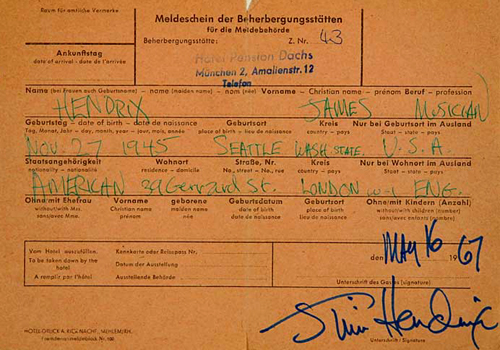 Raum für amtliche Vermerke
Meldeschein der Beherbergungsstätten
für die Meldebehörde
Beherbergungsstätte: Z. Nr. 43
Ankunftstag
date of arrival - date de l'arrivée
Hotel Pension Dachs
München 2, Amalienstr. 12
Telefon
Name (bei Frauen auch Geburtsname) – name (maiden name) – nom (née) Vorname – Christian name – prénom Beruf – profession
HENDRIX JAMES MUSICIAN
Geburtstag – date of birth – date de naissance Geburtsort Kreis Nur bei Geburtsort im Ausland
Tag, Monat, Jahr – day, month, year – jour, mois, année place of birth – lieu de naissance county – pays Staat – state – pays
NOV. 27 1945 SEATTLE WASH. STATE. U.S.A.
Staatsangehörigkeit Wohnort Straße, Nr. Kreis Nur bei Wohnort im Ausland
nationality – nationalité residence – domicile No., street – No., rue county – pays Staat – state – pays
AMERICAN 39 Gerrard St. LONDON W-1 ENG.
Ohne/mit Ehefrau Vorname geborene Geburtsdatum Geburtsort Ohne/mit Kindern (Anzahl)
without/with Mrs. Christian name maiden name date of birth place of birth without/with children (number)
sans/avec Mme. prénom née date de naissance lieu de naissance sans/avec enfants (nombre)
Vom Hotel auszufüllen. Kennkarte oder Reisepass Nr.
To be taken down by the hotel Datum der Ausstellung
A remplir par l'hôtel Ausstellende Behörde
den MAY 16 1967
Unterschrift des Gastes (signature)
Jimi Hendrix
Unterschrift / Signature